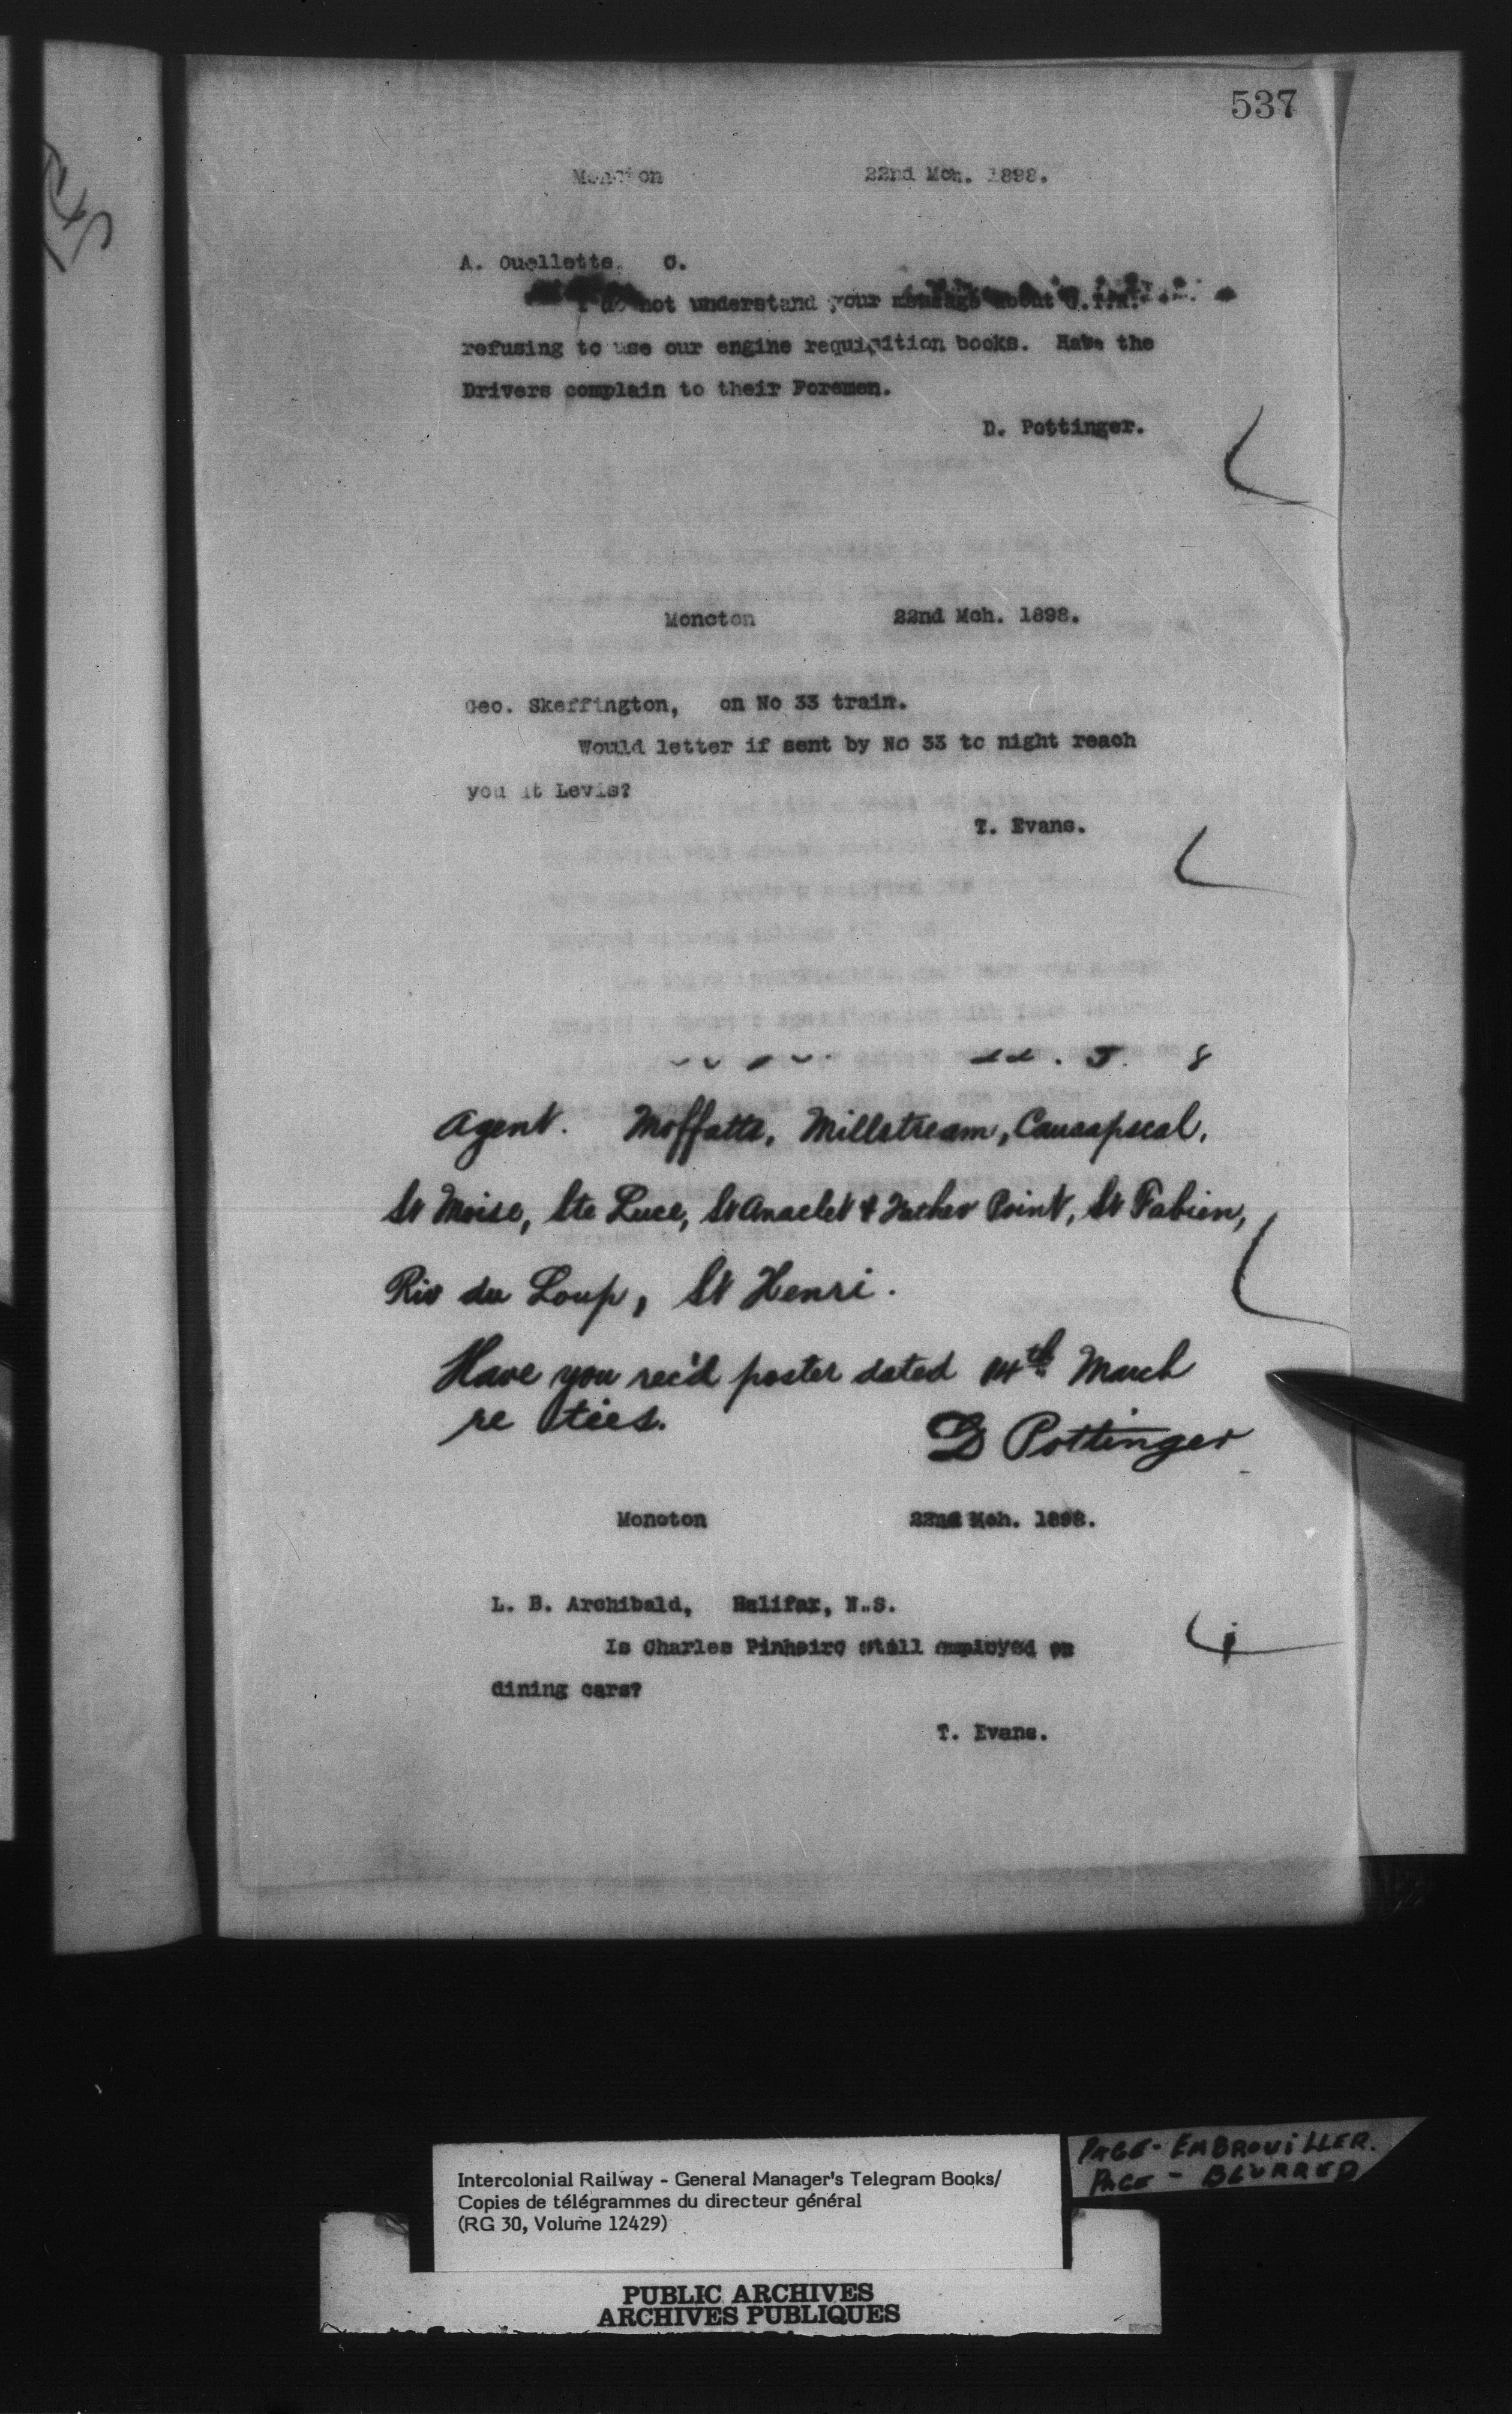 537
Moncton 22nd Mch. 1898.
A. Ouellette, C.
I do not understand your message about G.T.R.
refusing to use our engine requisition books. Have the
Drivers complain to their Foremen.
D. Pottinger.
Moncton 22nd Mch. 1898.
Geo. Skeffington, on No 33 train.
Would letter if sent by No 33 to night reach
you at Levis?
T. Evans.
22. 3. 8
Agent. Moffatts, Millstream, Causapscal,
St Moise, Ste Luce, St Anaclet & Father Point, St Fabien,
Riv du Loup, St Henri.
Have you rec'd poster dated 14th March
re ties.
D Pottinger
Moncton 22nd Mch. 1898.
L. B. Archibald, Halifax, N.S.
Is Charles Pinheiro still employed on
dining cars?
T. Evans.
PAGE - EMBROUILLER.
PAGE - BLURRED
Intercolonial Railway - General Manager's Telegram Books/
Copies de télégrammes du directeur général
(RG 30, Volume 12429)
PUBLIC ARCHIVES
ARCHIVES PUBLIQUES